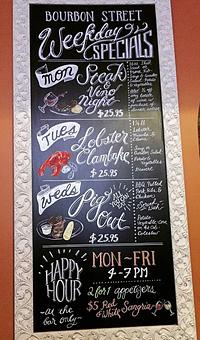 BOURBON STREET
Weekday
SPECIALS
mon
Steak
&
Vino
Night
$25.95
TUES
Lobster
Clambake
$25.95
1 1/4 lb
Lobster
Dessert
weds
Pig
Out
$25.95
BBQ Pulled
Pork Ribs &
Chicken
Potato
Vegetable
Coleslaw
HAPPY
HOUR
-at the
bar only-
MON-FRI
4-7PM
2 for 1 appetizers
$5 Red
& White Sangria